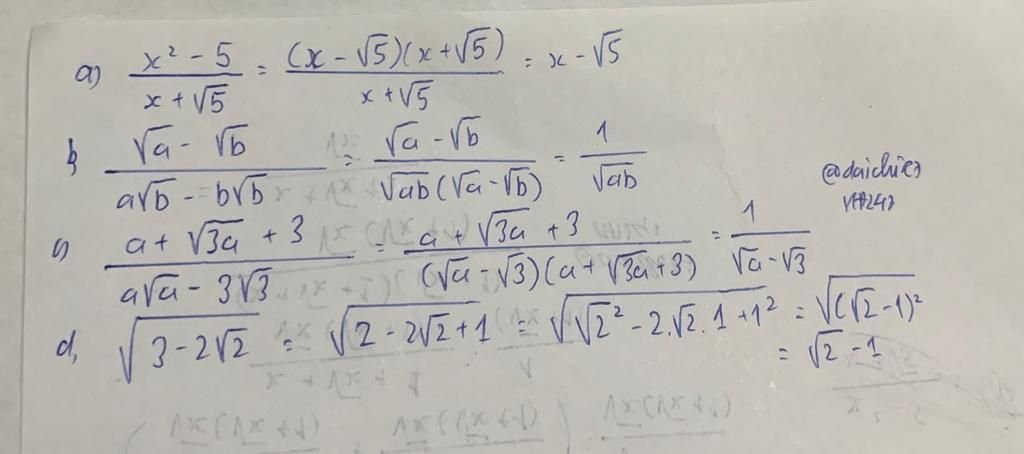 a) \frac{x² - 5}{x + √5} = \frac{(x - √5)(x + √5)}{x + √5} = x - √5
b, \frac{√a - √b}{a√b - b√b} = \frac{√a - √b}{√ab (√a - √b)} = \frac{1}{√ab}
c) \frac{a + √3a + 3}{a√a - 3√3} = \frac{a + √3a + 3}{(√a - √3)(a + √3a + 3)} = \frac{1}{√a - √3}
d, √(3 - 2√2) = √(2 - 2√2 + 1) = √(√2² - 2.√2.1 + 1²) = √((√2 - 1)²)
= √2 - 1